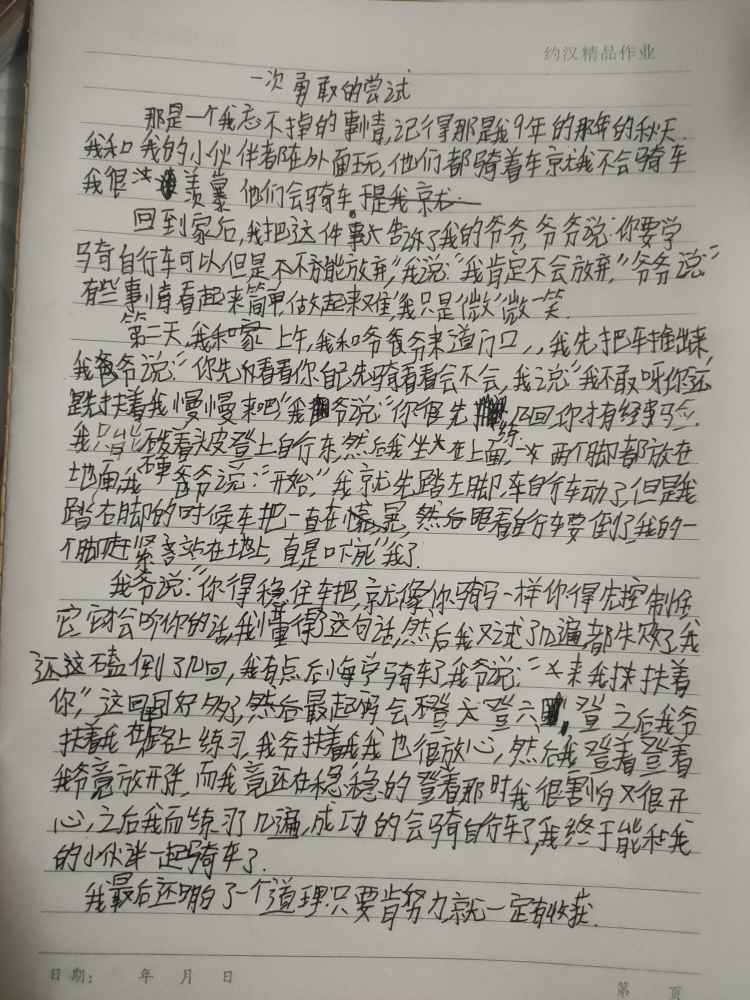 约汉精品作业
一次勇敢的尝试
那是一个我忘不掉的事情,记得那是我9年的那年的秋天.
我和我的小伙伴都在外面玩,他们都骑着车京尤我不会骑车
我很 羡慕 他们会骑车.于是我京尤
回到家后,我把这件事告诉了我的爷爷,爷爷说:你要学
骑自行车可以,但是不不能放弃,"我说:"我肯定不会放弃,"爷爷说"
有些事情看起来简单,做起来难"我只是"微"微一笑.
第二天,我和家上午,我和爷爷来道门口,,我先把车推出来,
我爷爷说:"你先看看你自己先骑看看会不会,我说"我不敢呀你还
跌扶着我慢慢来吧"我爷说:"你得先练几回你才有经验.
我只能破着头皮登上自行车,然后我坐在上面,两个脚都放在
地面,我 爷爷说:"开始,"我就先踏左脚,车自行车动了,但是我
踏右脚的时候车把一直在慌晃,然后眼看自行车要倒了我的一
个脚赶紧站在地上,真是"吓死"我了.
我爷说:"你得稳住车把,就像你骑马一样你得先控制住
它,它才会听你的话,我懂得了这句话,然后我又试了几遍,都失败了我
还这磕倒了几回,我有点后悔学骑车了,我爷说:"来我抹扶着
你,"这回可好多了,然后最起码会登 登六 登 之后我爷
扶着我在路上练习,我爷扶着我我也很放心,然后我登着登着
我爷竟放开张,而我竟还在稳稳的登着那时我很害怕又很开
心,之后我而练习了几遍,成功的会骑自行车了,我终于能和我
的小伙伴一起骑车了.
我最后还明白了一个道理只要肯努力,就一定有收获.
日期: 年 月 日
第 页